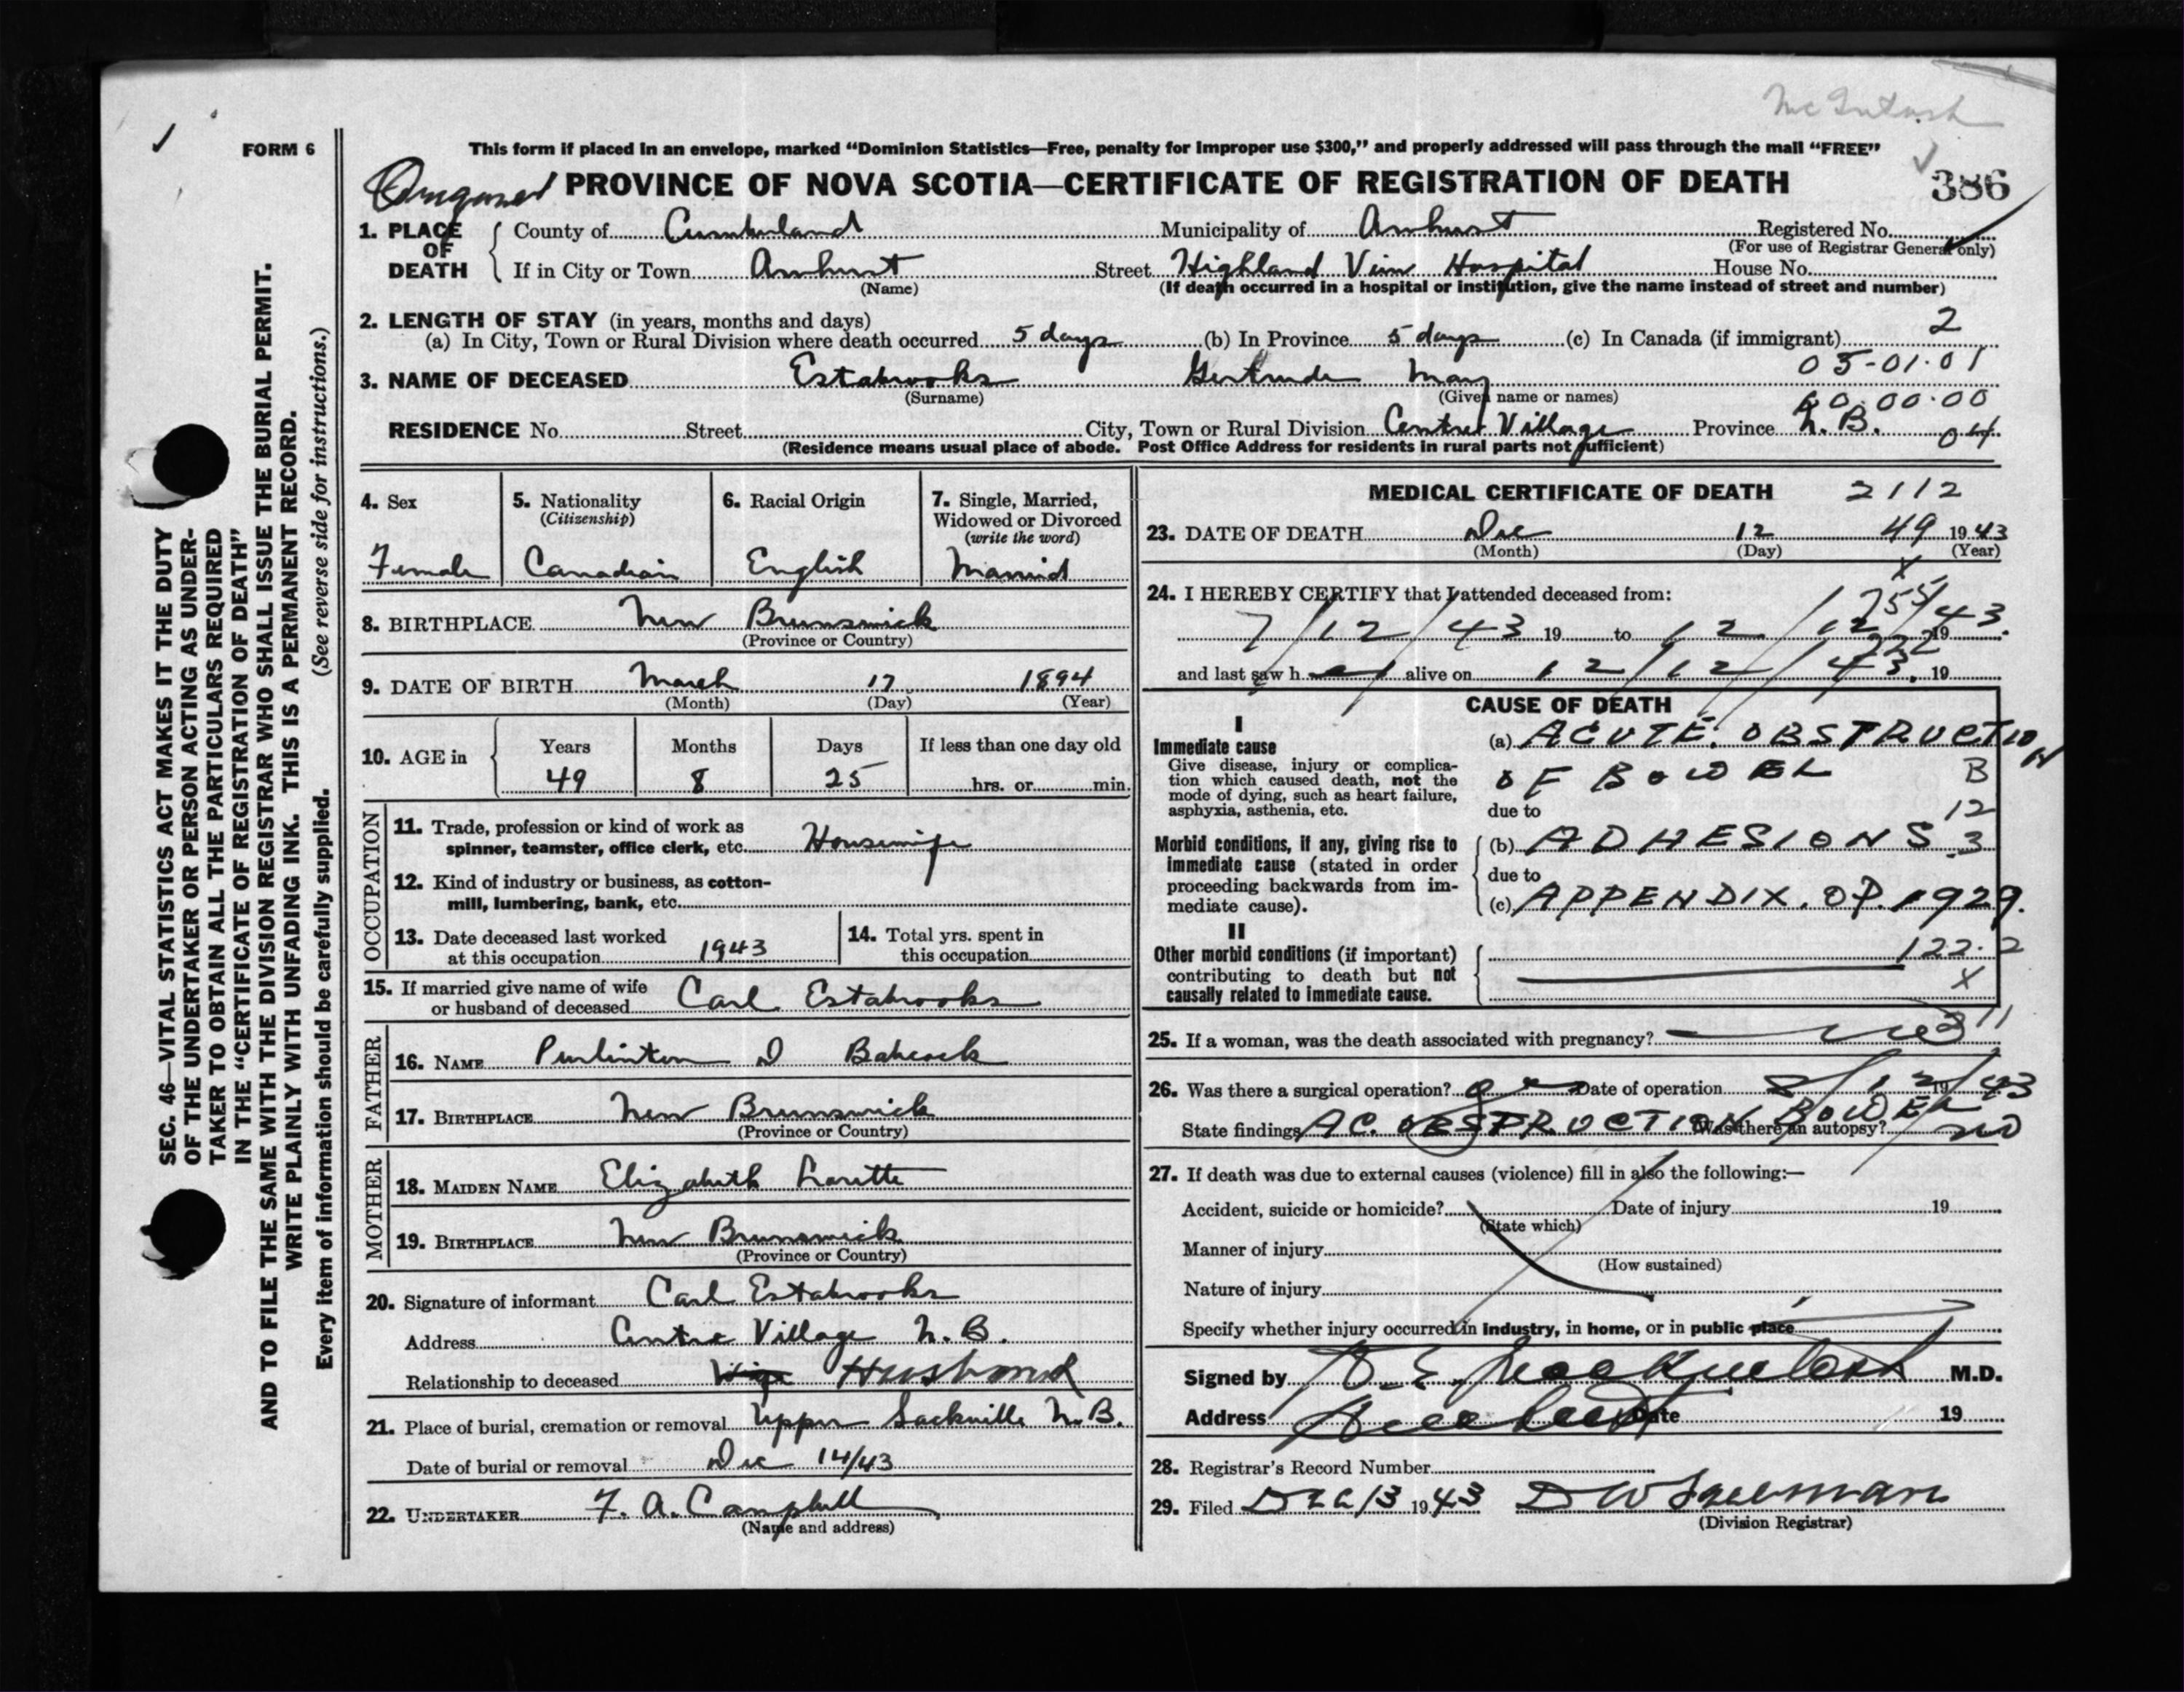 McIntosh
FORM 6
This form if placed in an envelope, marked “Dominion Statistics—Free, penalty for improper use $300,” and properly addressed will pass through the mail “FREE”
PROVINCE OF NOVA SCOTIA—CERTIFICATE OF REGISTRATION OF DEATH
386
1. PLACE OF DEATH
County of Cumberland Municipality of Amherst Registered No.
(For use of Registrar General only)
If in City or Town Amherst Street Highland View Hospital House No.
(Name) (If death occurred in a hospital or institution, give the name instead of street and number)
2. LENGTH OF STAY (in years, months and days) 2
(a) In City, Town or Rural Division where death occurred 5 days (b) In Province 5 days (c) In Canada (if immigrant)
05-01-01
3. NAME OF DECEASED Estabrooks Gertrude May
(Surname) (Given name or names) 60.00.00
RESIDENCE No. Street City, Town or Rural Division Centre Village Province N.B. 04
(Residence means usual place of abode. Post Office Address for residents in rural parts not sufficient)
4. Sex
Female
5. Nationality
(Citizenship)
Canadian
6. Racial Origin
English
7. Single, Married,
Widowed or Divorced
(write the word)
Married
8. BIRTHPLACE New Brunswick
(Province or Country)
9. DATE OF BIRTH March 17 1894
(Month) (Day) (Year)
10. AGE in
Years Months Days If less than one day old
49 8 25 hrs. or min.
OCCUPATION
11. Trade, profession or kind of work as
spinner, teamster, office clerk, etc. Housewife
12. Kind of industry or business, as cotton-
mill, lumbering, bank, etc.
13. Date deceased last worked
at this occupation 1943
14. Total yrs. spent in
this occupation
15. If married give name of wife
or husband of deceased Carl Estabrooks
FATHER
16. NAME Purlinton D Babcock
17. BIRTHPLACE New Brunswick
(Province or Country)
MOTHER
18. MAIDEN NAME Elizabeth Lorette
19. BIRTHPLACE New Brunswick
(Province or Country)
20. Signature of informant Carl Estabrooks
Address Centre Village N.B.
Relationship to deceased Husband
21. Place of burial, cremation or removal Upper Sackville N.B.
Date of burial or removal Dec 14/43
22. UNDERTAKER F. A. Campbell
(Name and address)
MEDICAL CERTIFICATE OF DEATH 2112
23. DATE OF DEATH Dec 12 49 1943
(Month) (Day) (Year)
X
24. I HEREBY CERTIFY that I attended deceased from:
7/12/43 19 to 12/12/43. 19
and last saw her alive on 12/12/43. 19
CAUSE OF DEATH
I
Immediate cause
Give disease, injury or complica-
tion which caused death, not the
mode of dying, such as heart failure,
asphyxia, asthenia, etc.
(a) ACUTE OBSTRUCTION
OF BOWEL B
due to 12
Morbid conditions, if any, giving rise to
immediate cause (stated in order
proceeding backwards from im-
mediate cause).
(b) ADHESIONS 3
due to
(c) APPENDIX. OP. 1929.
II
Other morbid conditions (if important)
contributing to death but not
causally related to immediate cause.
122.2
X
25. If a woman, was the death associated with pregnancy? no
26. Was there a surgical operation? Date of operation 8/12/43 19
State findings AC. OBSTRUCTION BOWEL Was there an autopsy? no
27. If death was due to external causes (violence) fill in also the following:—
Accident, suicide or homicide? Date of injury 19
(State which)
Manner of injury
(How sustained)
Nature of injury
Specify whether injury occurred in industry, in home, or in public place
Signed by M.D.
Address Amherst Date 19
28. Registrar's Record Number
29. Filed Dec 13 1943
(Division Registrar)
SEC. 46—VITAL STATISTICS ACT MAKES IT THE DUTY
OF THE UNDERTAKER OR PERSON ACTING AS UNDER-
TAKER TO OBTAIN ALL THE PARTICULARS REQUIRED
IN THE “CERTIFICATE OF REGISTRATION OF DEATH”
AND TO FILE THE SAME WITH THE DIVISION REGISTRAR WHO SHALL ISSUE THE BURIAL PERMIT.
WRITE PLAINLY WITH UNFADING INK. THIS IS A PERMANENT RECORD.
Every item of information should be carefully supplied. (See reverse side for instructions.)